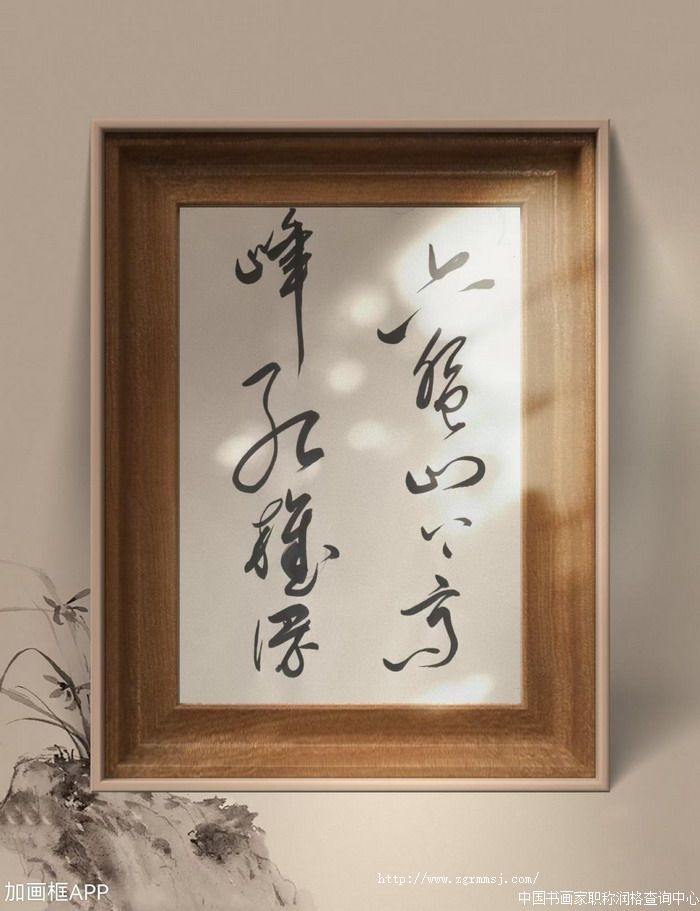 六盘山上高
峰红旗漫
http://www.zgrmmsj.com/
加画框APP
中国书画家职称润格查询中心